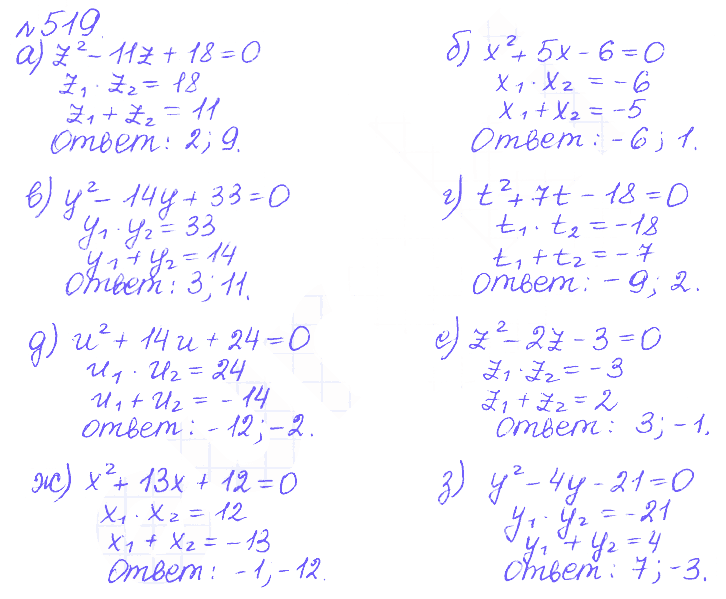 №519.
а) z² - 11z + 18 = 0
z₁ · z₂ = 18
z₁ + z₂ = 11
Ответ: 2; 9.
б) x² + 5x - 6 = 0
x₁ · x₂ = -6
x₁ + x₂ = -5
Ответ: -6; 1.
в) y² - 14y + 33 = 0
y₁ · y₂ = 33
y₁ + y₂ = 14
Ответ: 3; 11.
г) t² + 7t - 18 = 0
t₁ · t₂ = -18
t₁ + t₂ = -7
Ответ: -9; 2.
д) u² + 14u + 24 = 0
u₁ · u₂ = 24
u₁ + u₂ = -14
Ответ: -12; -2.
е) z² - 2z - 3 = 0
z₁ · z₂ = -3
z₁ + z₂ = 2
Ответ: 3; -1.
ж) x² + 13x + 12 = 0
x₁ · x₂ = 12
x₁ + x₂ = -13
Ответ: -1, -12.
з) y² - 4y - 21 = 0
y₁ · y₂ = -21
y₁ + y₂ = 4
Ответ: 7; -3.